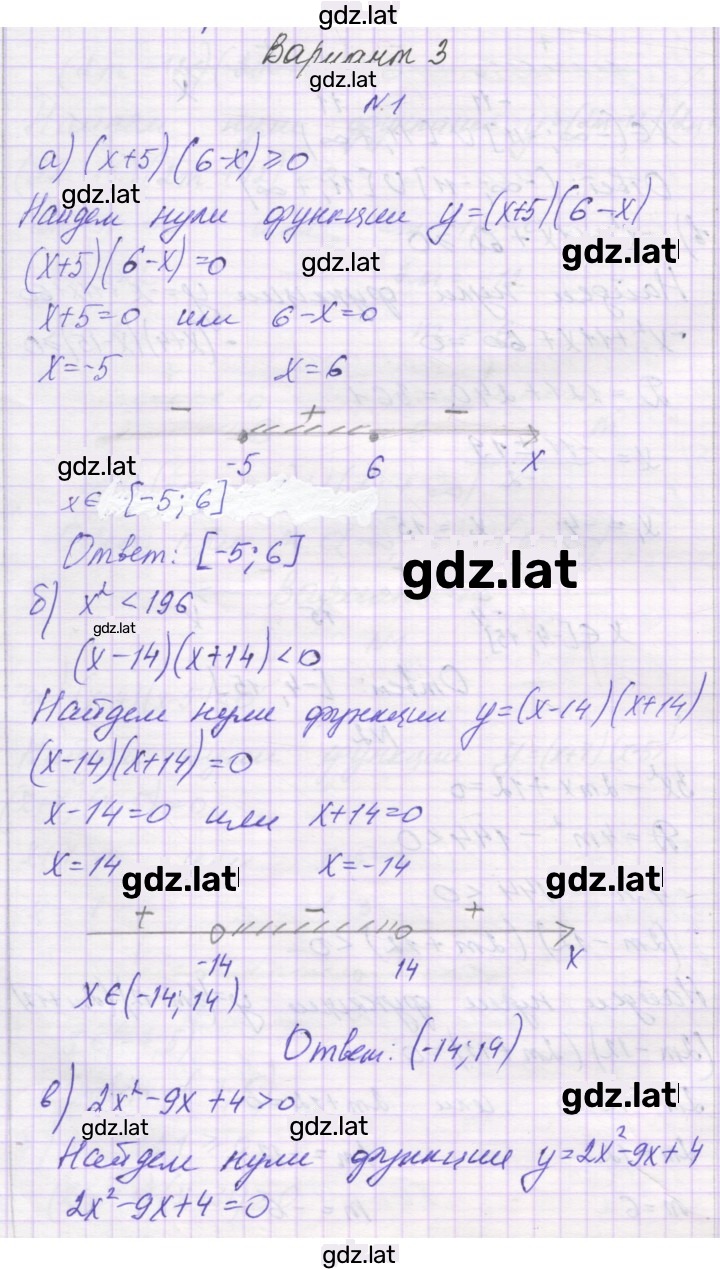 gdz.lat
Вариант 3
gdz.lat
N.1
а) (x+5)(6-x)≥0
gdz.lat
Найдем нули функции y=(x+5)(6-x)
gdz.lat
(x+5)(6-x)=0 gdz.lat
x+5=0 или 6-x=0
x=-5 x=6
- + -
gdz.lat -5 6 x
x∈ [-5; 6]
Ответ: [-5; 6]
gdz.lat
б) x²<196
gdz.lat
(x-14)(x+14)<0
Найдем нули функции y=(x-14)(x+14)
(x-14)(x+14)=0
x-14=0 или x+14=0
x=14 gdz.lat x=-14 gdz.lat
+ - +
-14 14 x
x∈(-14; 14)
Ответ: (-14; 14)
в) 2x²-9x+4>0 gdz.lat
gdz.lat gdz.lat
Найдем нули функции y=2x²-9x+4
2x²-9x+4=0
gdz.lat